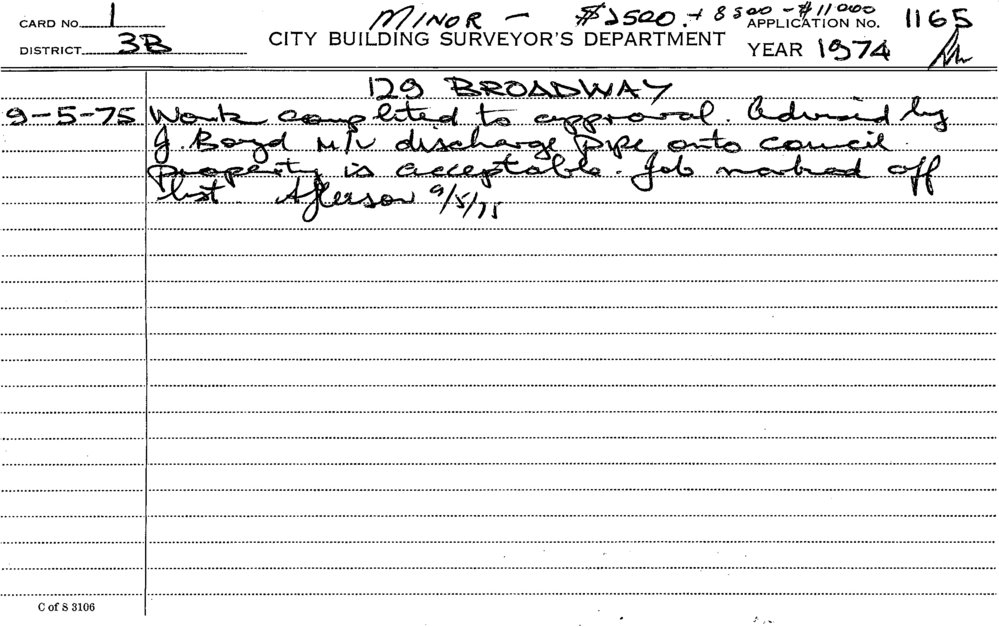 CARD NO. 1 MINOR - $2500. + 8500 - $11000 APPLICATION NO. 1165
DISTRICT 3B CITY BUILDING SURVEYOR'S DEPARTMENT YEAR 1974
129 BROADWAY
9-5-75 Work completed to approval. Advised by
J. Boyd M/V discharge pipe onto council
property is acceptable. Job marked off
list. 9/5/75
C of S 3106